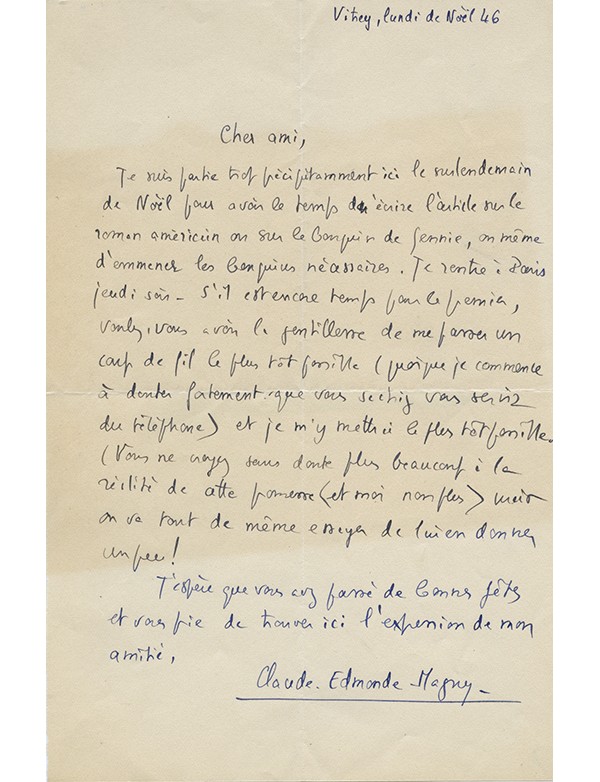 Vitrey, lundi de Noël 46
Cher ami,
Je suis partie trop précipitamment ici le surlendemain
de Noël pour avoir le temps d'écrire l'article sur le
roman américain ou sur le bouquin de Jennie, ou même
d'emmener les bouquins nécessaires. Je rentre à Paris
jeudi soir – S'il est encore temps pour le premier,
voulez-vous avoir la gentillesse de me passer un
coup de fil le plus tôt possible (quoique je commence
à douter fortement que vous sachiez vous servir
du téléphone) et je m'y mettrai le plus tôt possible.
(Vous ne croyez sans doute plus beaucoup à la
réalité de cette promesse (et moi non plus) mais
on va tout de même essayer de lui en donner
un peu!
J'espère que vous avez passé de bonnes fêtes
et vous prie de trouver ici l'expression de mon
amitié,
Claude-Edmonde Magny –